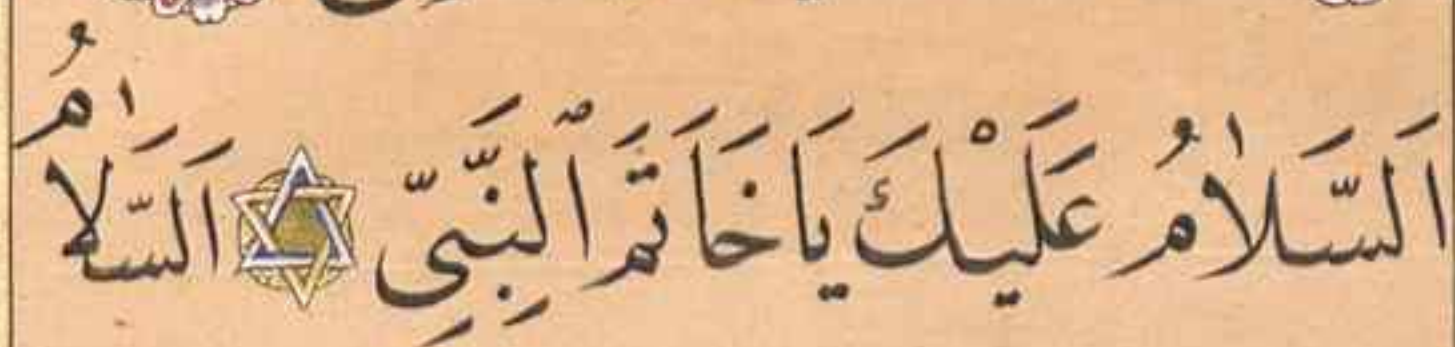 اَلسَّلَامُ عَلَيْكَ يَاخَاتَمَ ٱلنَّبِیِّ اَلسَّلَامُ